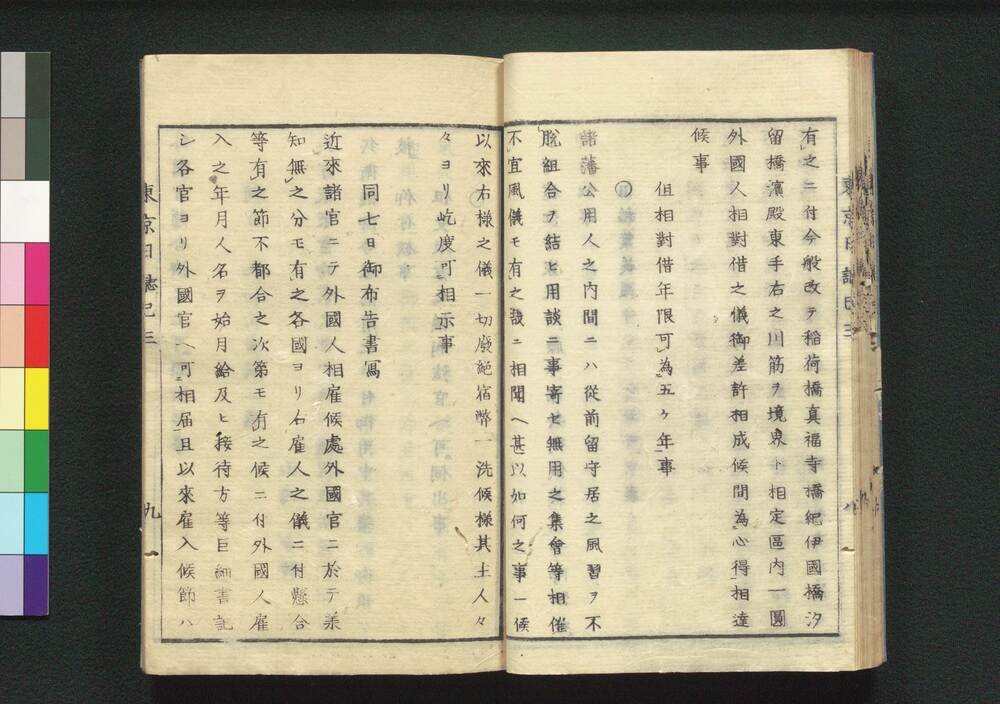 有之ニ付今般改テ稲荷橋真福寺橋紀伊國橋汐
留橋濵殿東手右之川筋ヲ境界ト相定區内一圓
外國人相對借之儀御差許相成候間為心得相達
候事
但相對借年限可為五ヶ年事
○
諸藩公用人之内間ニハ從前留守居之風習ヲ不
脱組合ヲ結ヒ用談ニ事寄セ無用之集會等相催
不宜風儀モ有之哉ニ相聞ヘ甚以如何之事ニ候
以來右様之儀一切廢絕宿弊一洗候様其主人々
々ヨリ屹度可相示事
同七日御布告書寫
近來諸官ニテ外國人相雇候處外國官ニ於テ兼
知無之分モ有之各國ヨリ右雇人之儀ニ付懸合
等有之節不都合之次第モ有之候ニ付外國人雇
入之年月人名ヲ始月給及ヒ接待方等巨細書記
シ各官ヨリ外國官ヘ可相届且以來雇入候節ハ
東京日誌巳三
九